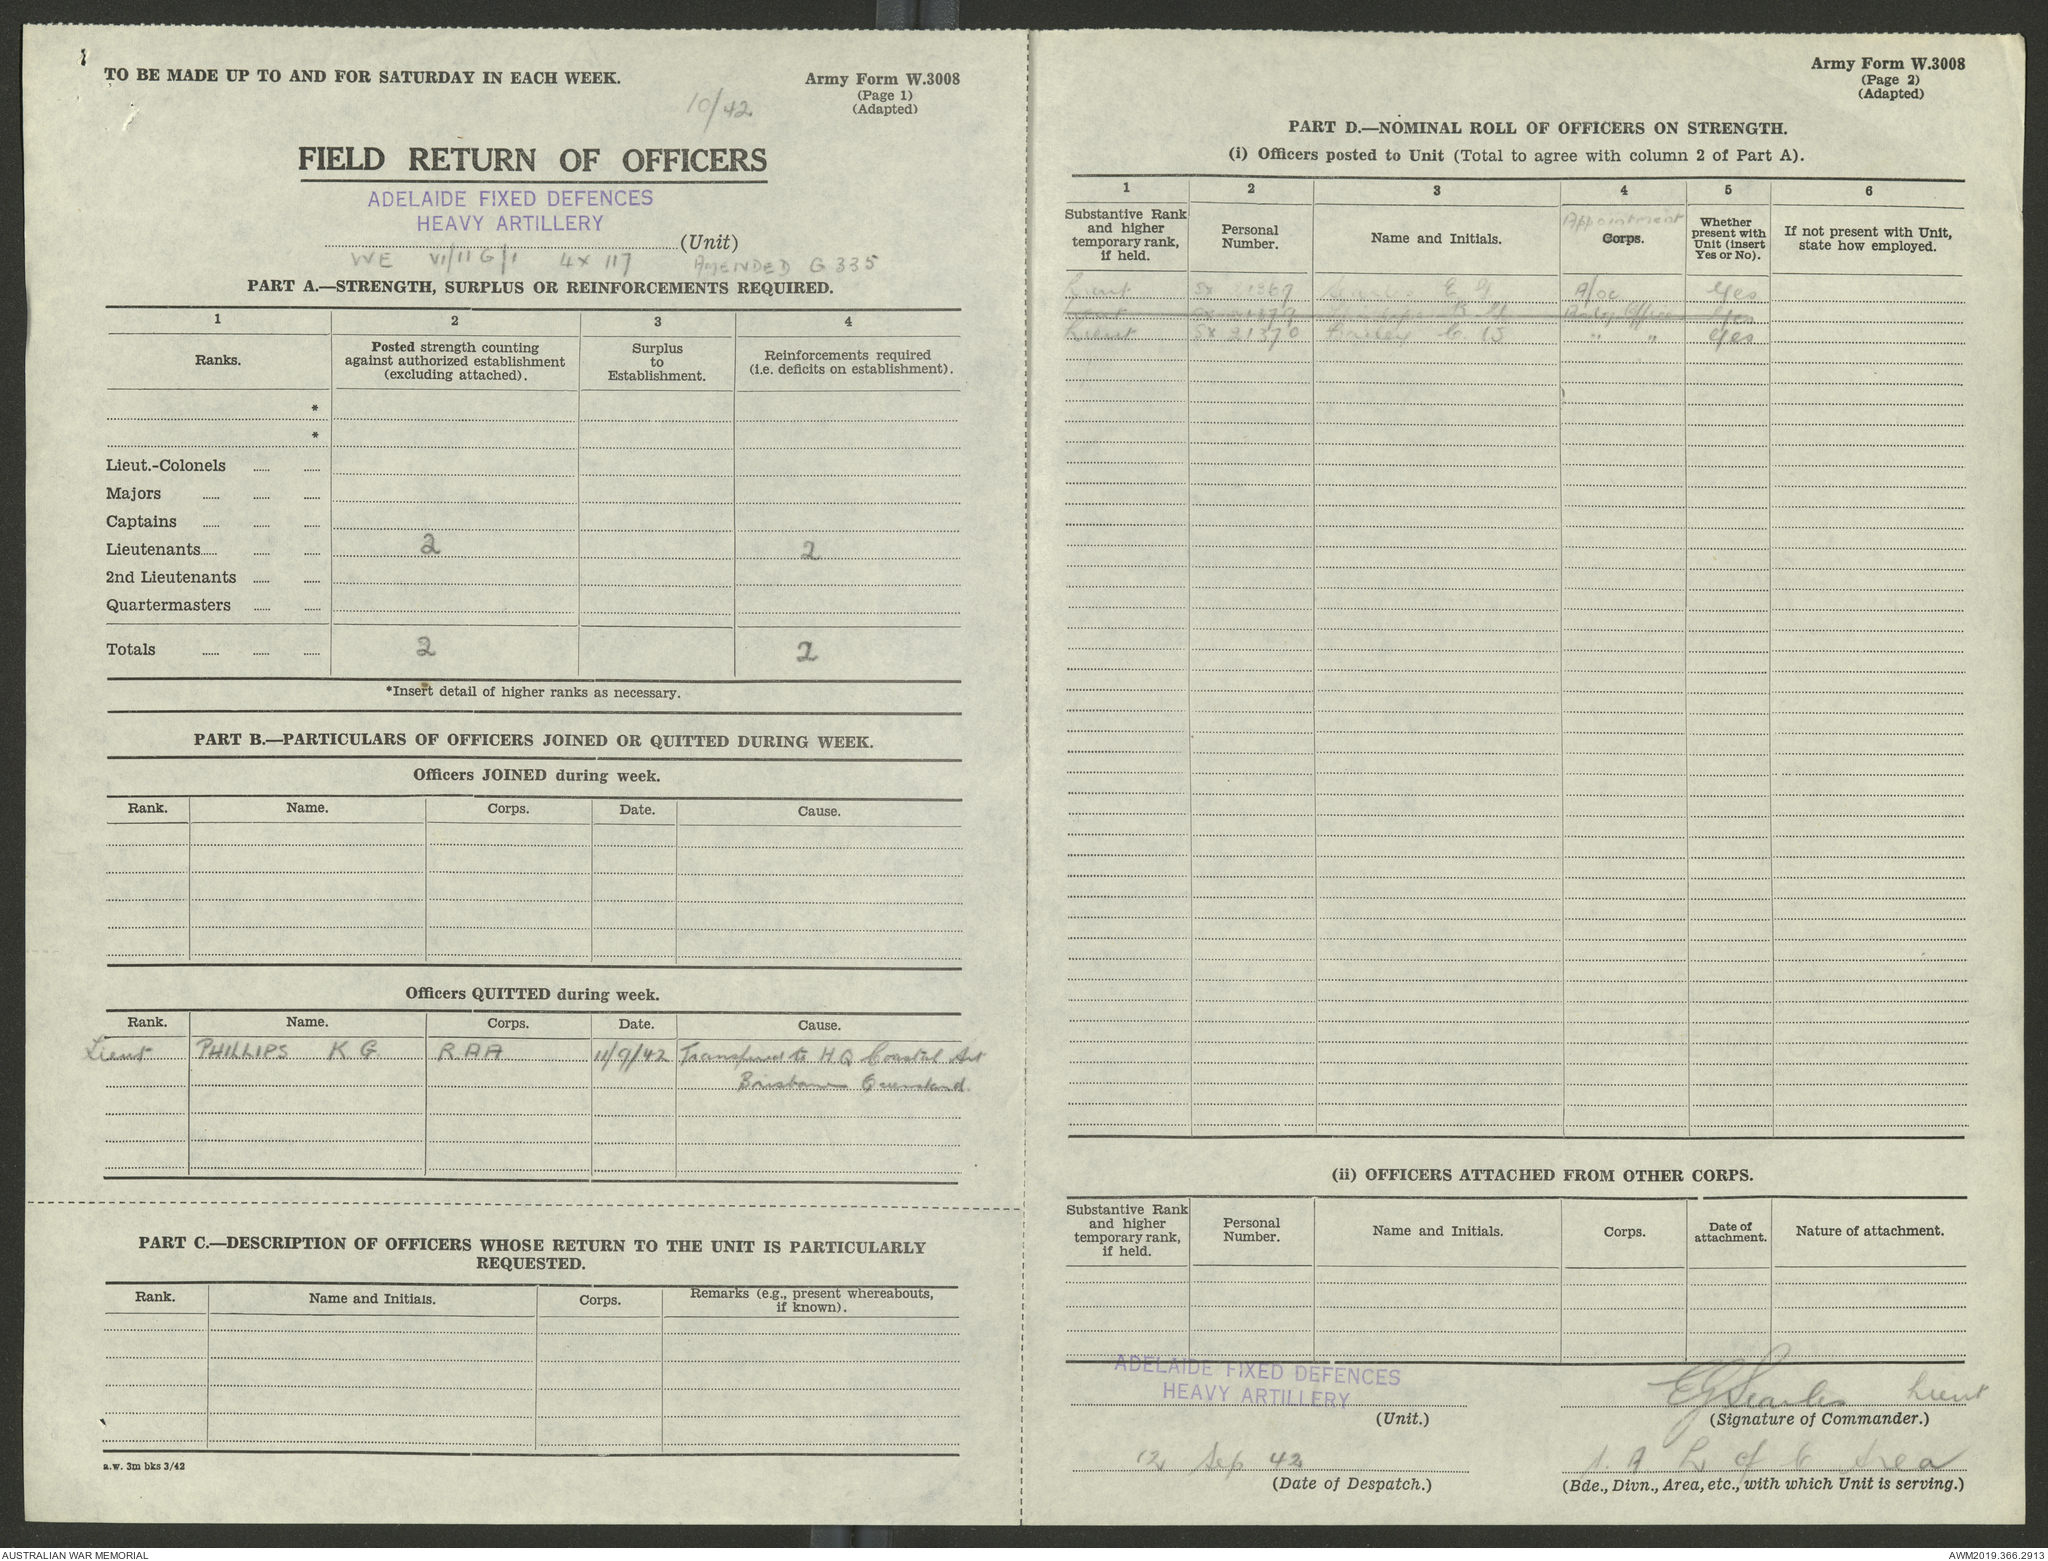 TO BE MADE UP TO AND FOR SATURDAY IN EACH WEEK.
Army Form W.3008
(Page 1)
(Adapted)
10/42
FIELD RETURN OF OFFICERS
ADELAIDE FIXED DEFENCES
HEAVY ARTILLERY
(Unit)
WE VI/11G/1 4 x 117 AMENDED G 335
PART A.—STRENGTH, SURPLUS OR REINFORCEMENTS REQUIRED.
1 2 3 4
Ranks.
Posted strength counting against authorized establishment (excluding attached).
Surplus to Establishment.
Reinforcements required (i.e. deficits on establishment).
*
*
Lieut.-Colonels
Majors
Captains
Lieutenants 2 2
2nd Lieutenants
Quartermasters
Totals 2 2
*Insert detail of higher ranks as necessary.
PART B.—PARTICULARS OF OFFICERS JOINED OR QUITTED DURING WEEK.
Officers JOINED during week.
Rank. Name. Corps. Date. Cause.
Officers QUITTED during week.
Rank. Name. Corps. Date. Cause.
Lieut PHILLIPS K G RAA 11/9/42 Transferred to HQ Coastal Art
Brisbane Queensland.
PART C.—DESCRIPTION OF OFFICERS WHOSE RETURN TO THE UNIT IS PARTICULARLY
REQUESTED.
Rank. Name and Initials. Corps. Remarks (e.g., present whereabouts, if known).
a.w. 3m bks 3/42
Army Form W.3008
(Page 2)
(Adapted)
PART D.—NOMINAL ROLL OF OFFICERS ON STRENGTH.
(i) Officers posted to Unit (Total to agree with column 2 of Part A).
1 2 3 4 5 6
Substantive Rank and higher temporary rank, if held.
Personal Number.
Name and Initials.
Appointment
Corps.
Whether present with Unit (insert Yes or No).
If not present with Unit, state how employed.
Lieut SX Searles E G A/OC Yes
Yes
Lieut SX 21370 C. W " " Yes
(ii) OFFICERS ATTACHED FROM OTHER CORPS.
Substantive Rank and higher temporary rank, if held.
Personal Number.
Name and Initials.
Corps.
Date of attachment.
Nature of attachment.
ADELAIDE FIXED DEFENCES
HEAVY ARTILLERY
(Unit.)
EG Searles Lieut
(Signature of Commander.)
12 Sep 42
(Date of Despatch.)
S. A L of C Area
(Bde., Divn., Area, etc., with which Unit is serving.)
AUSTRALIAN WAR MEMORIAL
AWM2019.366.2913